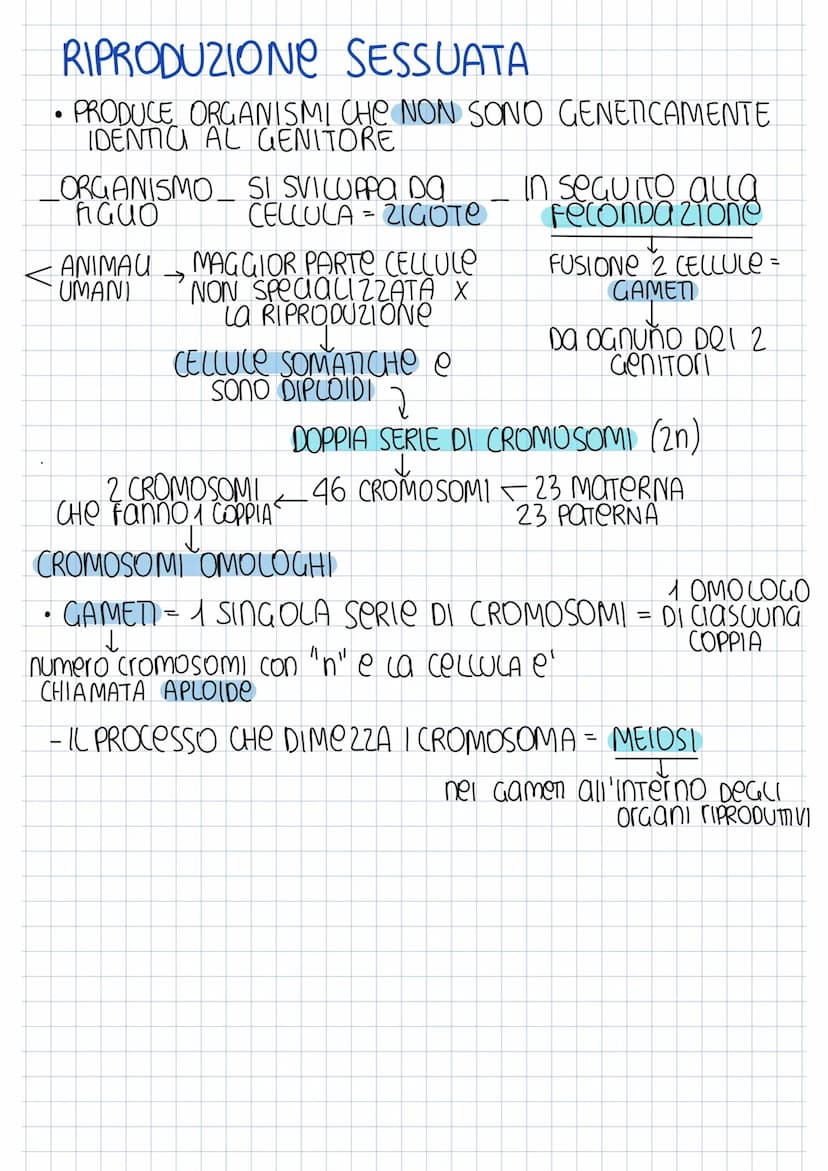 RIPRODUZIONE SESSUATA
• PRODUCE ORGANISMI CHE NON SONO GENETICAMENTE
IDENTICI AL GENITORE
_ORGANISMO_ SI SVILUPPA DA _ IN SEGUITO ALLA
FIGLIO CELLULA = ZIGOTE FECONDAZIONE
< ANIMALI → MAGGIOR PARTE CELLULE
UMANI NON SPECIALIZZATA X
LA RIPRODUZIONE
↓
FUSIONE 2 CELLULE =
GAMETI
↓
DA OGNUNO DEI 2
GENITORI
↓
CELLULE SOMATICHE E
SONO DIPLOIDI
DOPPIA SERIE DI CROMOSOMI (2n)
↓
2 CROMOSOMI ← 46 CROMOSOMI < 23 MATERNA
CHE FANNO 1 COPPIA 23 PATERNA
↓
CROMOSOMI OMOLOGHI
• GAMETI = 1 SINGOLA SERIE DI CROMOSOMI = 1 OMOLOGO
DI CIASCUNA
COPPIA
↓
NUMERO CROMOSOMI CON "n" E LA CELLULA E'
CHIAMATA APLOIDE
- IL PROCESSO CHE DIMEZZA I CROMOSOMA = MEIOSI
↓
NEI GAMETI ALL'INTERNO DEGLI
ORGANI RIPRODUTTIVI